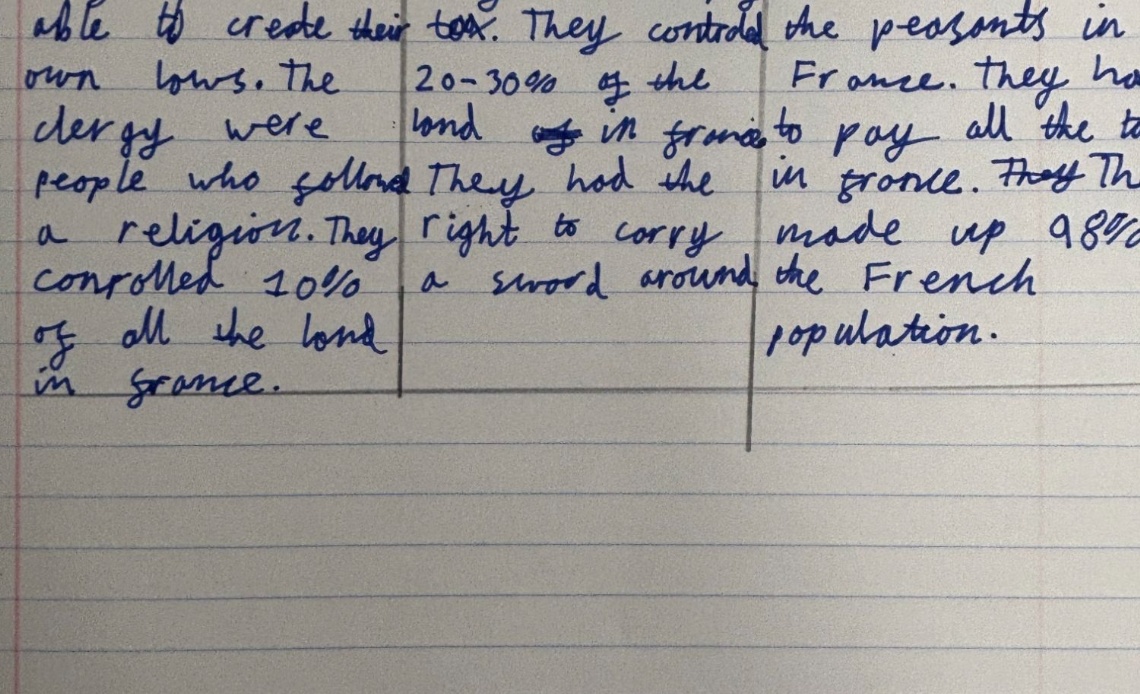 able to create their
own laws. The
clergy were
people who followed
a religion. They
conrolled 10%
of all the land
in france.
tax. They controled
20-30% of the
land in france.
They had the
right to carry
a sword around
the peasants in
France. They ha
to pay all the ta
in france. They Th
made up 98%
the French
population.